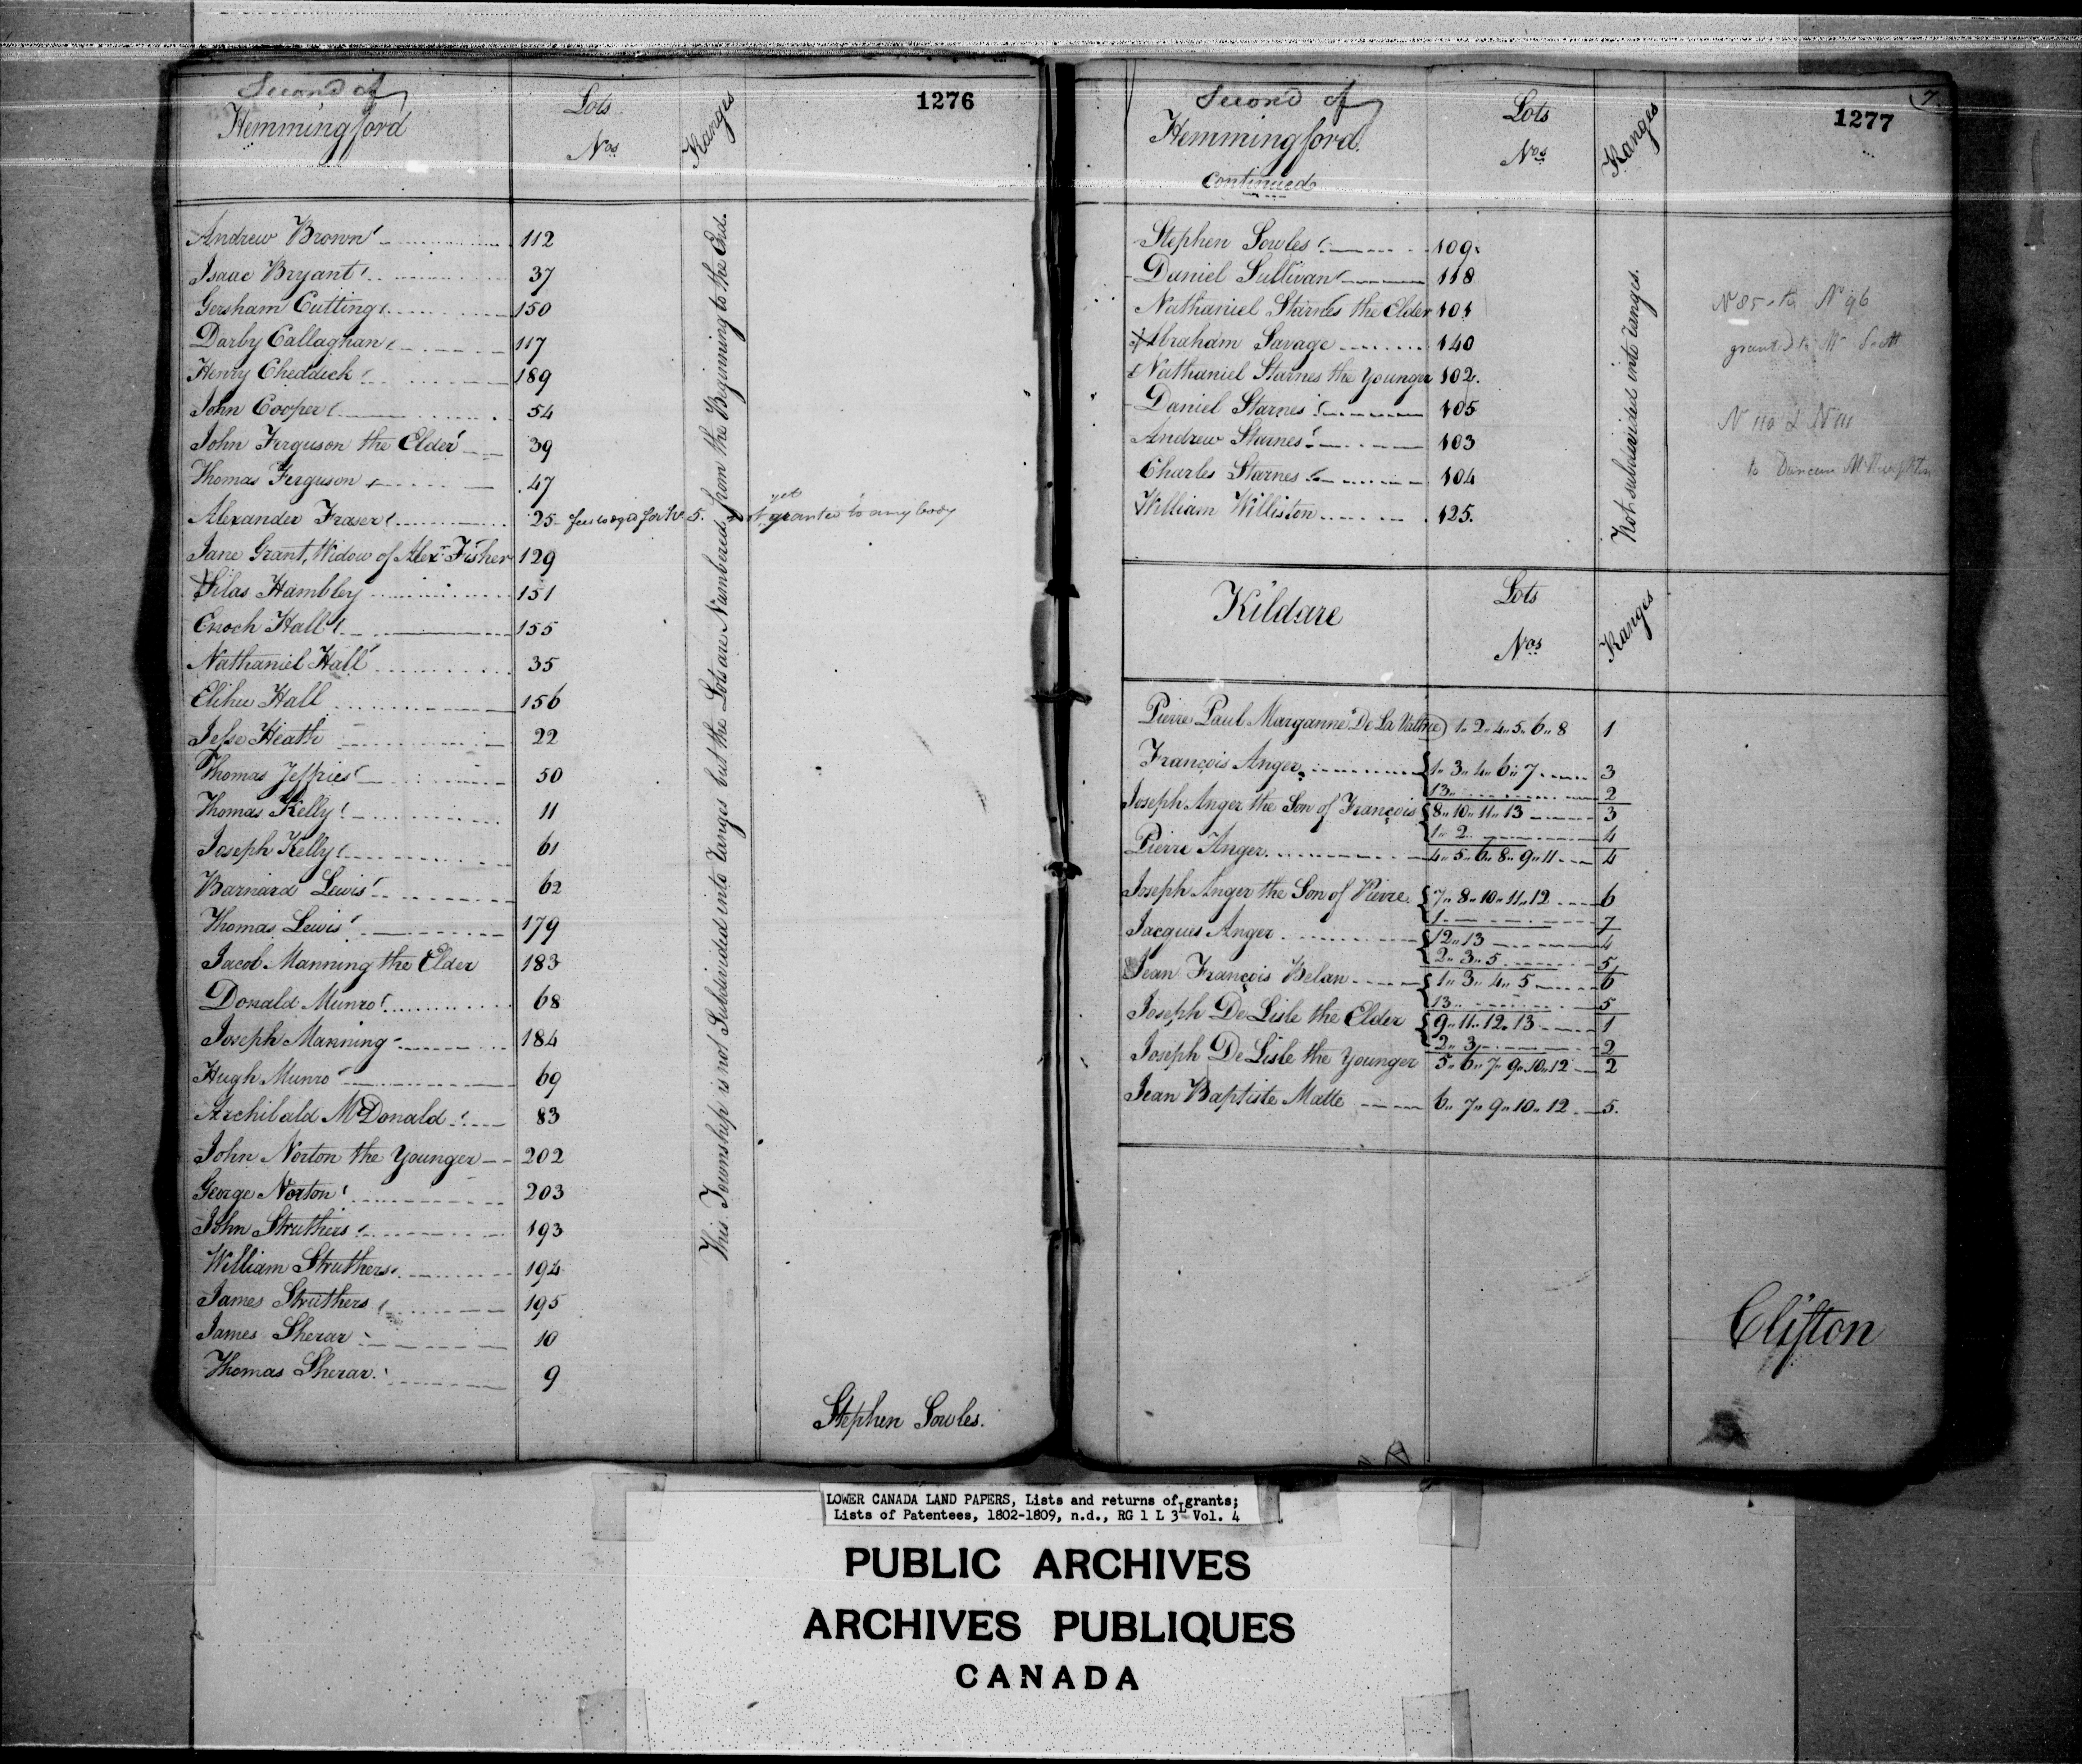 Second of
Hemmingford
Lots
Nos
Ranges
1276
Andrew Brown 112
Isaac Bryant 37
Gersham Cutting 150
Darby Callaghan 117
Henry Cheddick 189
John Cooper 54
John Ferguson the Elder 39
Thomas Ferguson 47
Alexander Fraser 25 for No 5. not yet granted to any body
Jane Grant, Widow of Alexr Fisher 129
Silas Hambley 151
Enoch Hall 155
Nathaniel Hall 35
Elihu Hall 156
Jesse Heath 22
Thomas Jeffries 50
Thomas Kelly 11
Joseph Kelly 61
Barnard Lewis 62
Thomas Lewis 179
Jacob Manning the Elder 183
Donald Munro 68
Joseph Manning 184
Hugh Munro 69
Archibald McDonald 83
John Norton the Younger 202
George Norton 203
John Struthers 193
William Struthers 194
James Struthers 195
James Sherar 10
Thomas Sherar 9
This Township is not Subdivided into ranges but the Lots are Numbered from the Beginning to the End.
Stephen Sowles.
Second of
Hemmingford
Continued
Lots
Nos
Ranges
7
1277
Stephen Sowles 109
Daniel Sullivan 118
Nathaniel Starnes the Elder 101
Abraham Savage 140
Nathaniel Starnes the Younger 102.
Daniel Starnes 105
Andrew Starnes 103
Charles Starnes 104
William Williston 125.
Not subdivided into ranges.
N 85 to N 96
granted to Mr Scott
N 110 & N 111
to Duncan
Kildare
Lots
Nos
Ranges
Pierre Paul Marganne De La Valtrie 1" 2" 4" 5" 6" 8 1
François Anger { 1" 3" 4" 6" 7 3
13 2
Joseph Anger the Son of François { 8" 10" 11" 13 3
1" 2 4
Pierre Anger 4" 5" 6" 8" 9" 11 4
Joseph Anger the Son of Pierre { 7" 8" 10" 11" 12 6
1 7
Jacques Anger { 12" 13 4
2" 3" 5 5
Jean François Belan { 1" 3" 4" 5 6
13 5
Joseph De Lisle the Elder { 9" 11" 12" 13 1
2" 3 2
Joseph De Lisle the Younger 5" 6" 7" 9" 10" 12 2
Jean Baptiste Matte 6" 7" 9" 10" 12 5.
Clifton
LOWER CANADA LAND PAPERS, Lists and returns of grants;
Lists of Patentees, 1802-1809, n.d., RG 1 L 3L Vol. 4
PUBLIC ARCHIVES
ARCHIVES PUBLIQUES
CANADA